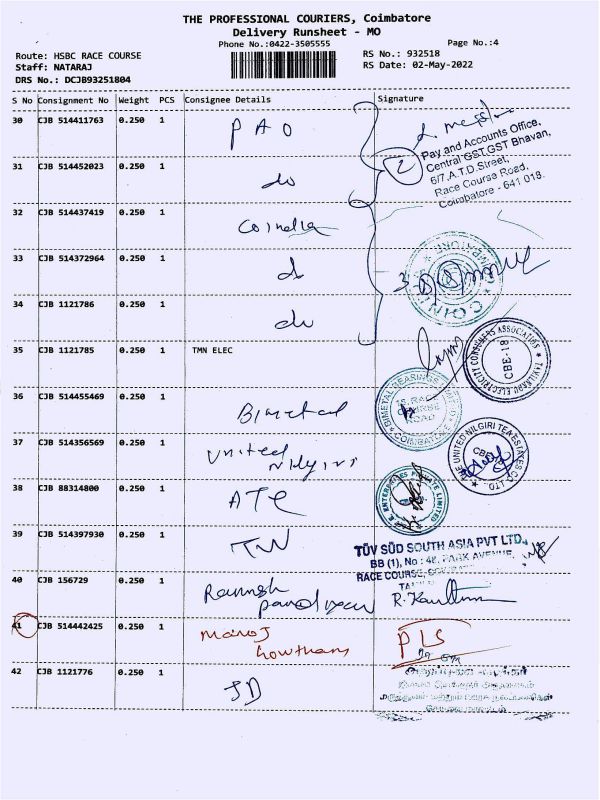 THE PROFESSIONAL COURIERS, Coimbatore
Delivery Runsheet - MO
Phone No.:0422-3505555
Page No.:4
Route: HSBC RACE COURSE
RS No.: 932518
Staff: NATARAJ
RS Date: 02-May-2022
DRS No.: DCJB93251804
S No Consignment No Weight PCS Consignee Details Signature
30 CJB 514411763 0.250 1 PAO
Pay and Accounts Office,
Central GST,GST Bhavan,
6/7, A.T.D.Street,
Race Course Road,
Coimbatore - 641 018.
2
31 CJB 514452023 0.250 1 do
32 CJB 514437419 0.250 1 Coindia
33 CJB 514372964 0.250 1 d
3
34 CJB 1121786 0.250 1 do
35 CJB 1121785 0.250 1 TMN ELEC
TAMILNADU ELECTRICITY CONSUMERS ASSOCIATION
CBE-18
36 CJB 514455469 0.250 1 Bimetal
BIMETAL BEARINGS LIMITED
COIMBATORE
37 CJB 514356569 0.250 1 United Nilgiris
THE UNITED NILGIRI TEA ESTATES CO LTD.
38 CJB 88314800 0.250 1 ATE
ENTERPRISES PRIVATE LIMITED
39 CJB 514397930 0.250 1 TUV
TÜV SÜD SOUTH ASIA PVT LTD.,
BB (1), No : 48, PARK AVENUE,
RACE COURSE,
40 CJB 156729 0.250 1 Ramesh
pandiyan
41 CJB 514442425 0.250 1 Manoj
Gowtham
PLS
42 CJB 1121776 0.250 1 JD